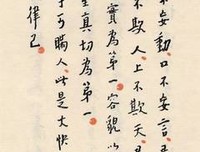 不妄動口不妄言
不欺人上不欺天
實為第一容貌以
真切為第一
可瞞人此是大快
律己